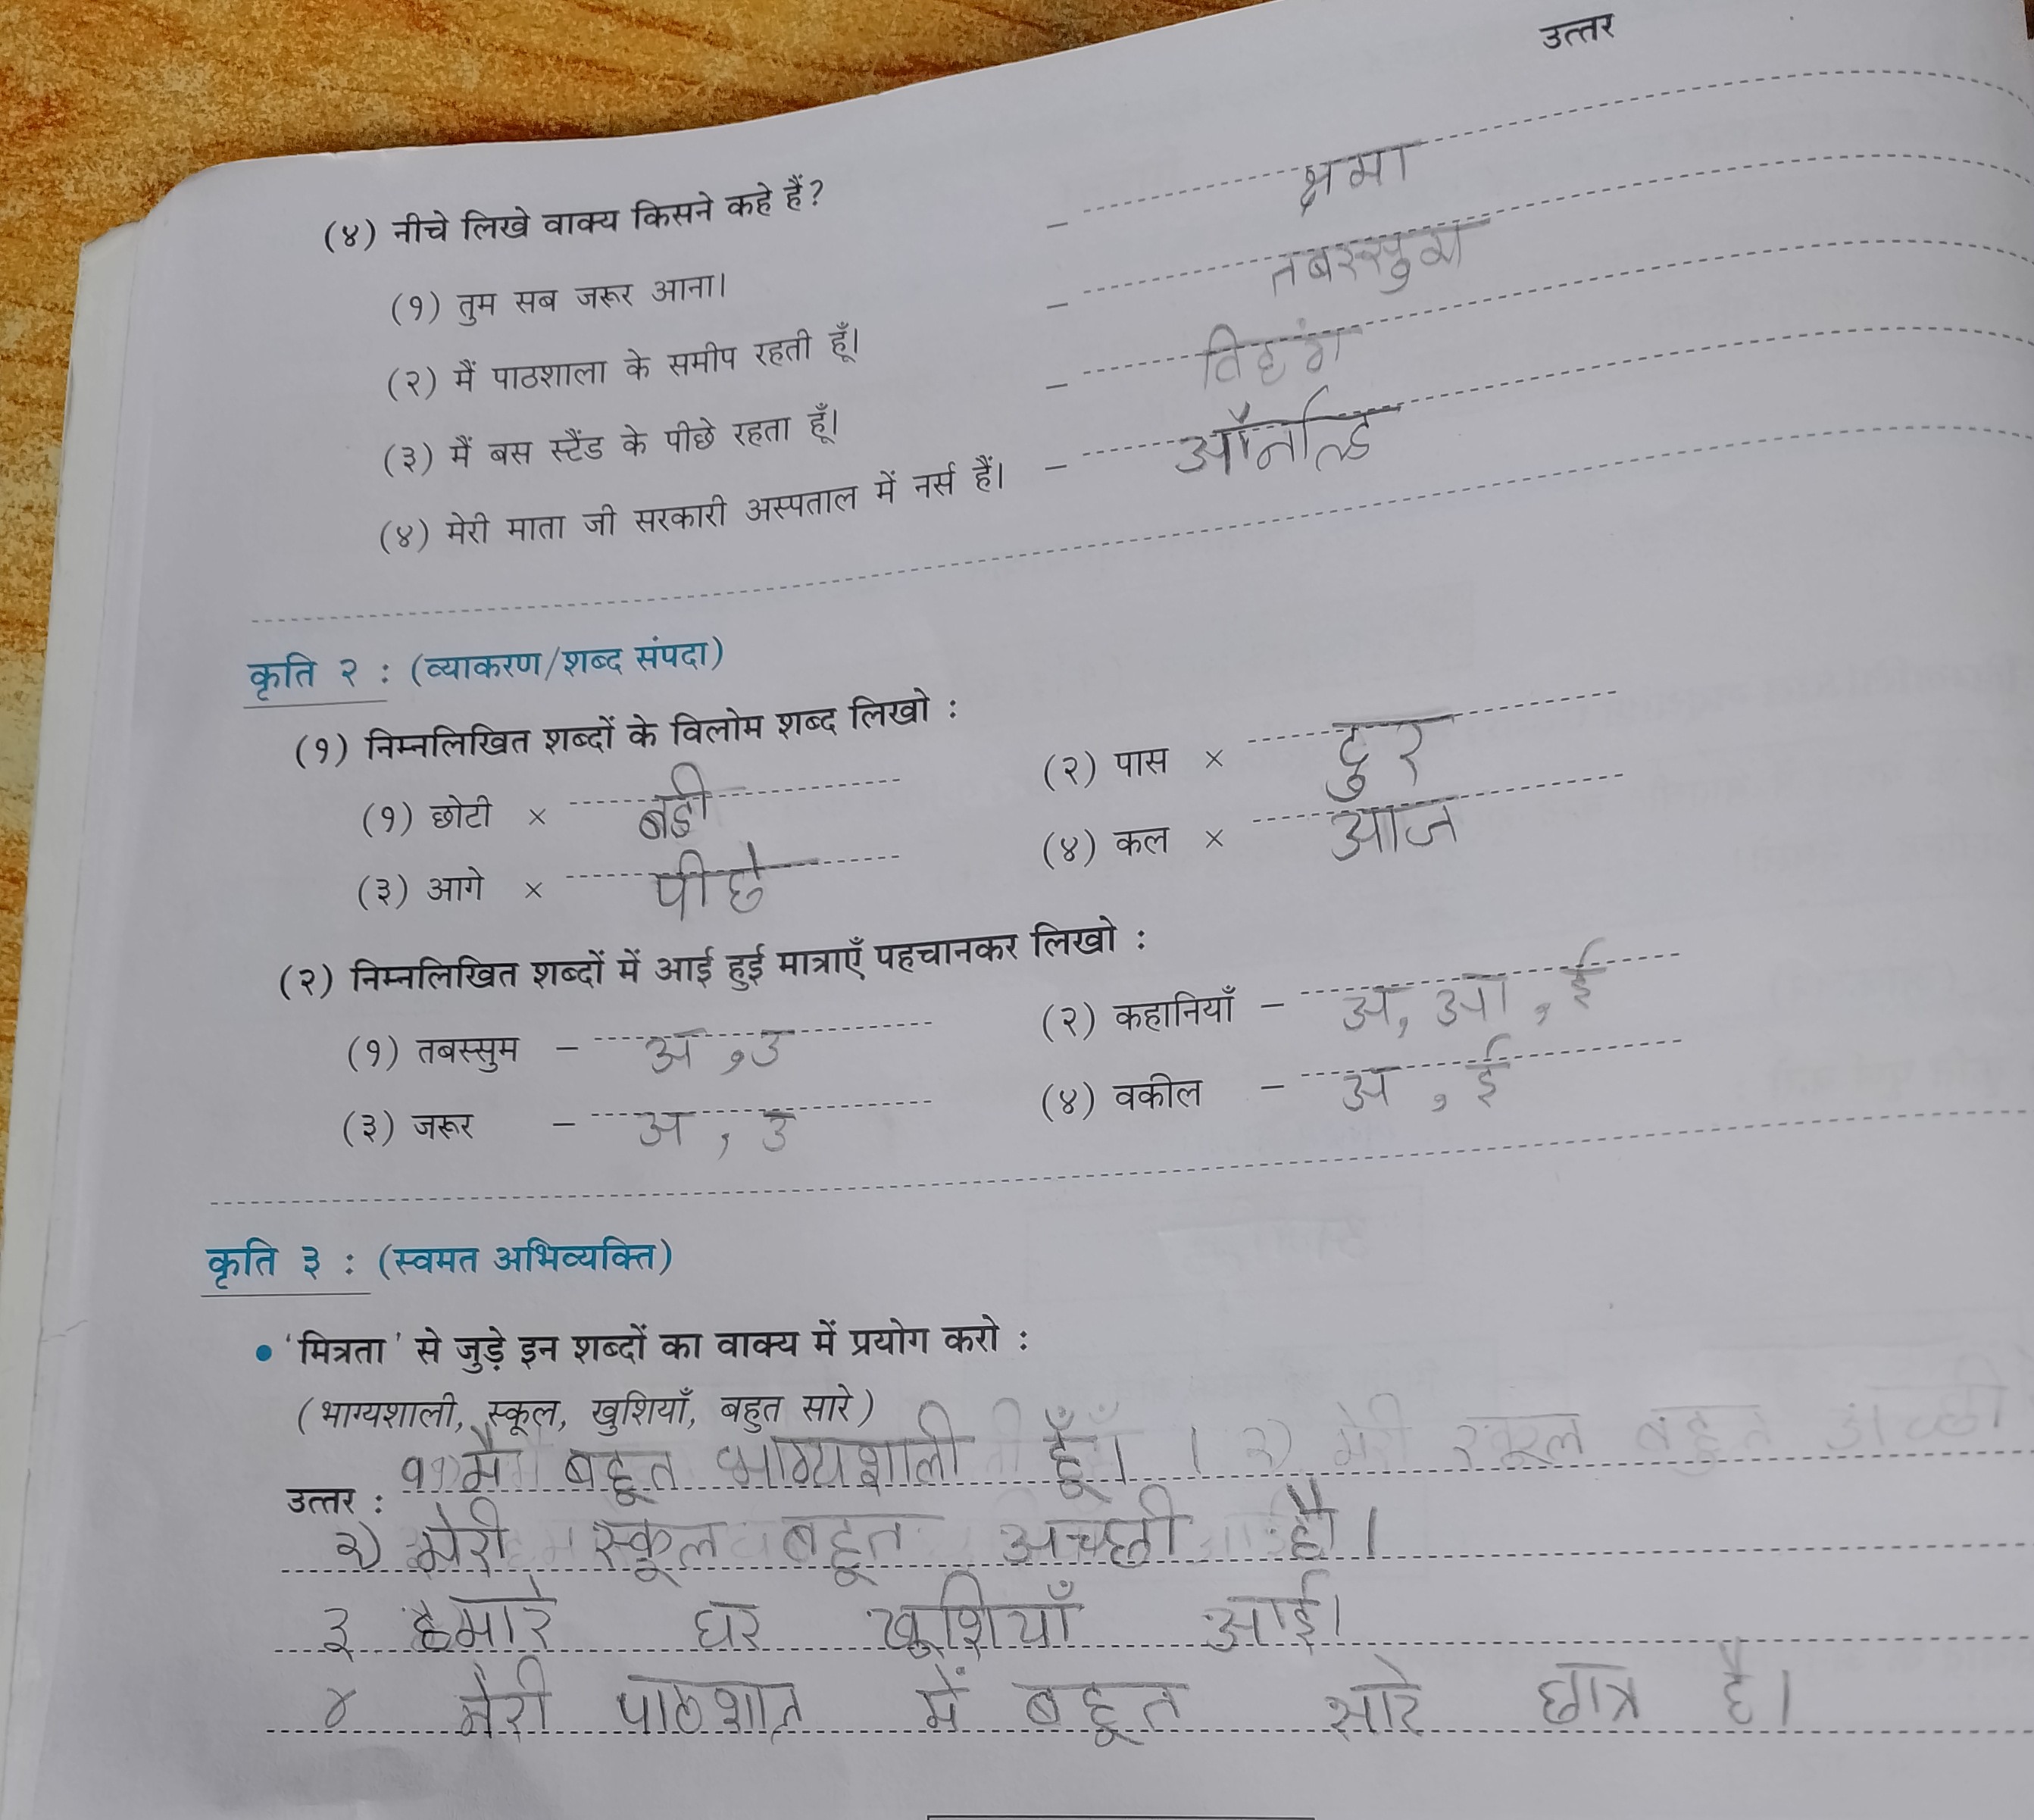 उत्तर
(४) नीचे लिखे वाक्य किसने कहे हैं?
(१) तुम सब जरूर आना। – क्षमा
(२) मैं पाठशाला के समीप रहती हूँ। – तबस्सुम
(३) मैं बस स्टैंड के पीछे रहता हूँ। – विहंग
(४) मेरी माता जी सरकारी अस्पताल में नर्स हैं। – ऑर्नाल्ड
कृति २ : (व्याकरण/शब्द संपदा)
(१) निम्नलिखित शब्दों के विलोम शब्द लिखो :
(१) छोटी × बडी (२) पास × दुर
(३) आगे × पीछे (४) कल × आज
(२) निम्नलिखित शब्दों में आई हुई मात्राएँ पहचानकर लिखो :
(१) तबस्सुम – अ, उ (२) कहानियाँ – अ, आ, ई
(३) जरूर – अ, उ (४) वकील – अ, ई
कृति ३ : (स्वमत अभिव्यक्ति)
• 'मित्रता' से जुड़े इन शब्दों का वाक्य में प्रयोग करो :
(भाग्यशाली, स्कूल, खुशियाँ, बहुत सारे)
उत्तर : १) मै बहूत भाग्यशाली हूँ। २) मेरी स्कूल बहुत अच्छी
२) मेरी स्कूल बहूत अच्छी है।
३ हमारे घर खूशियाँ आई।
४ मेरी में बहूत सारे छात्र है।